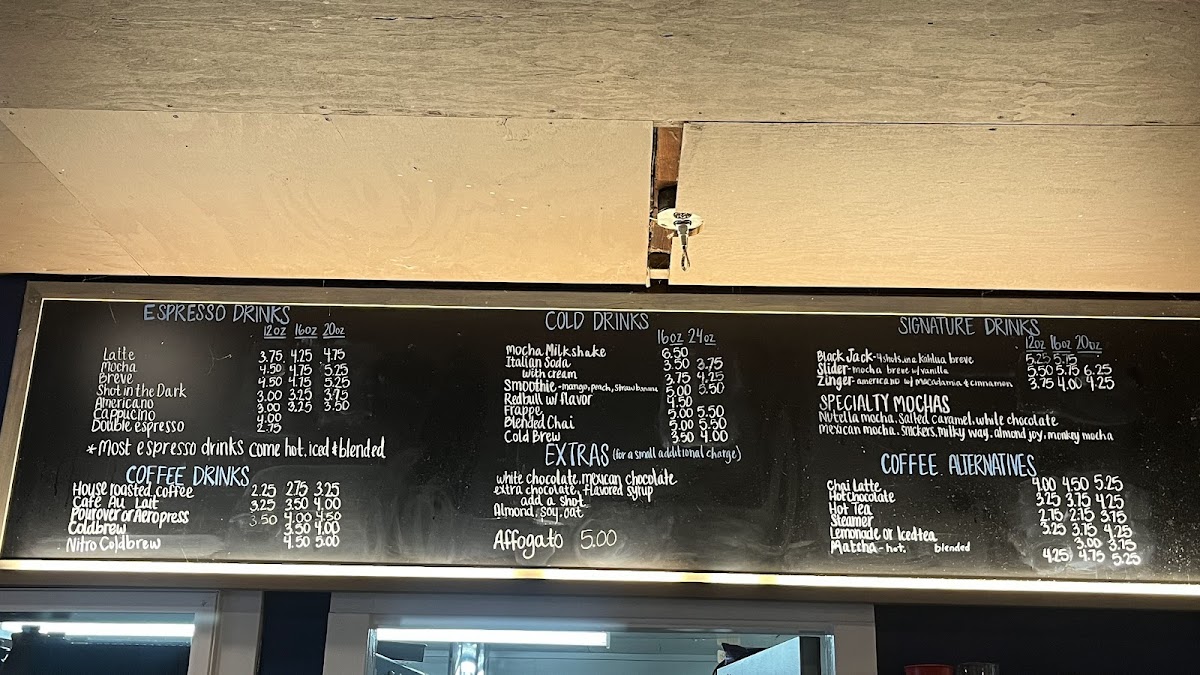 ESPRESSO DRINKS
12oz 16oz 20oz
Latte 3.75 4.25 4.75
Mocha 4.50 4.75 5.25
Breve 4.50 4.75 5.25
Shot in the Dark 3.00 3.25 3.75
Americano 3.00 3.25 3.50
Cappucino 4.00
Double espresso 2.75
*Most espresso drinks come hot, iced & blended
COFFEE DRINKS
House roasted coffee 2.25 2.75 3.25
Café Au Lait 3.25 3.50 4.00
Pourover or Aeropress 3.50 4.00 4.50
Coldbrew 3.50 4.00
Nitro Coldbrew 4.50 5.00
COLD DRINKS
16oz 24oz
Mocha Milkshake 6.50
Italian Soda 3.50 3.75
with cream 3.75 4.25
Smoothie - mango, peach, strawbanana 5.00 5.50
Redbull w/ flavor 4.50
Frappe 5.00 5.50
Blended Chai 5.00 5.50
Cold Brew 3.50 4.00
EXTRAS (for a small additional charge)
white chocolate, mexican chocolate
extra chocolate, flavored syrup
add a shot
Almond, soy, oat
Affogato 5.00
SIGNATURE DRINKS
12oz 16oz 20oz
Black Jack - 4 shots in a Kahlua breve 5.25 5.75
Slider - mocha breve w/ vanilla 5.50 5.75 6.25
Zinger - americano w/ macadamia & cinnamon 3.75 4.00 4.25
SPECIALTY MOCHAS
Nutella mocha, salted caramel, white chocolate
mexican mocha, snickers, milky way, almond joy, monkey mocha
COFFEE ALTERNATIVES
Chai Latte 4.00 4.50 5.25
Hot chocolate 3.25 3.75 4.25
Hot Tea 2.75 2.75 3.75
Steamer 3.25 3.75 4.25
Lemonade or Icedtea 3.00 3.75
Matcha - hot, blended 4.25 4.75 5.25